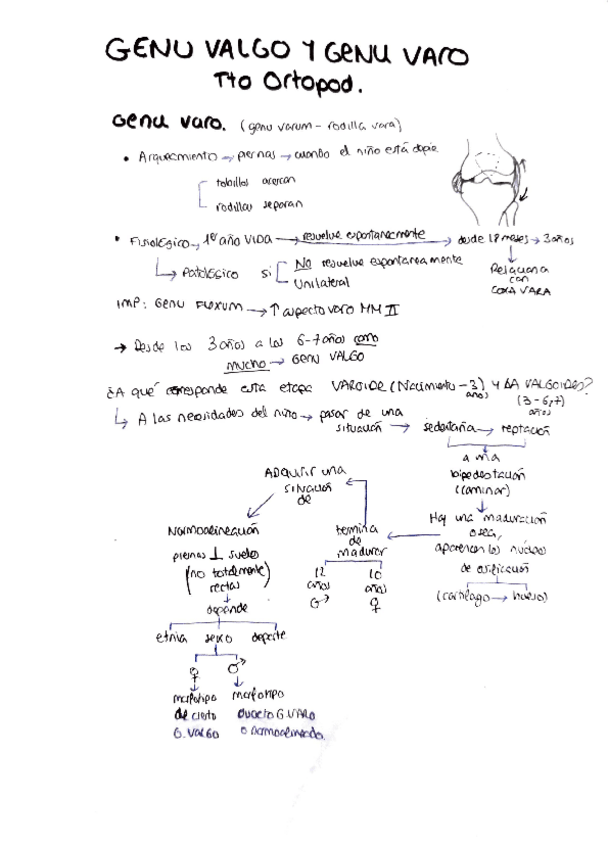 GENU VALGO Y GENU VARO
Tto Ortopod.
Genu varo. (genu varum - rodilla vara)
• Arqueamiento → piernas → cuando el niño está de pie
tobillos acercan
rodillas separan
• Fisiológico → 1er año VIDA → resuelve espontaneamente → desde 18 meses → 3 años
Relaciona
con
COXA VARA
↳ Patológico si No resuelve espontaneamente
Unilateral
IMP: Genu Flexum → ↑ aspecto varo MM II
→ Desde los 3 años a los 6-7 años como
mucho → Genu VALGO
¿A qué corresponde esta etapa VAROIDE (Nacimiento - 3 años) y LA VALGOIDE?
(3-6,7)
años
↳ A las necesidades del niño → pasar de una
situación → sedentaria → reptación
a una
bipedestación
(caminar)
Hay una maduración
osea,
aparecen los núcleos
de osificación
(cartílago → hueso)
termina
de
madurar
12 años ♂
10 años ♀
ADQUIRIR una
situación
de
Normoalineación
piernas ⊥ suelo
(no totalmente)
rectas
depende
etnia sexo deporte
♀ ♂
morfotipo morfotipo
de cierto G. VARO
G. VALGO o normoalineado.